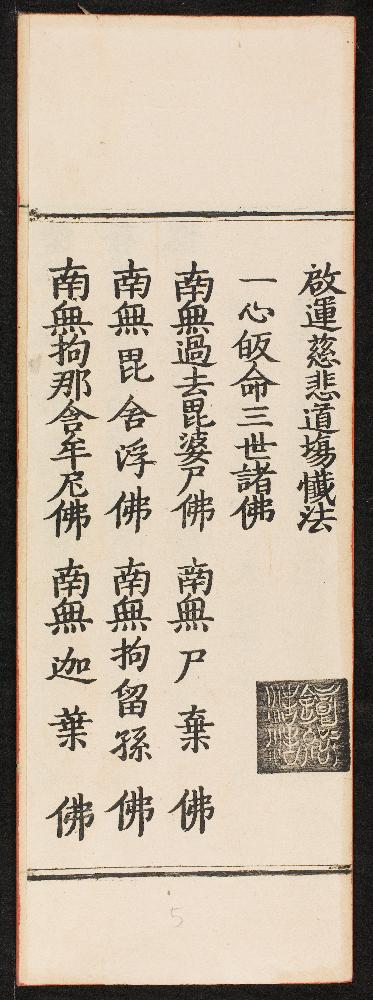 啟運慈悲道塲懺法
一心皈命三世諸佛
南無過去毘婆尸佛 南無尸棄佛
南無毘舍浮佛 南無拘留孫佛
南無拘那含牟尼佛 南無迦葉佛
5